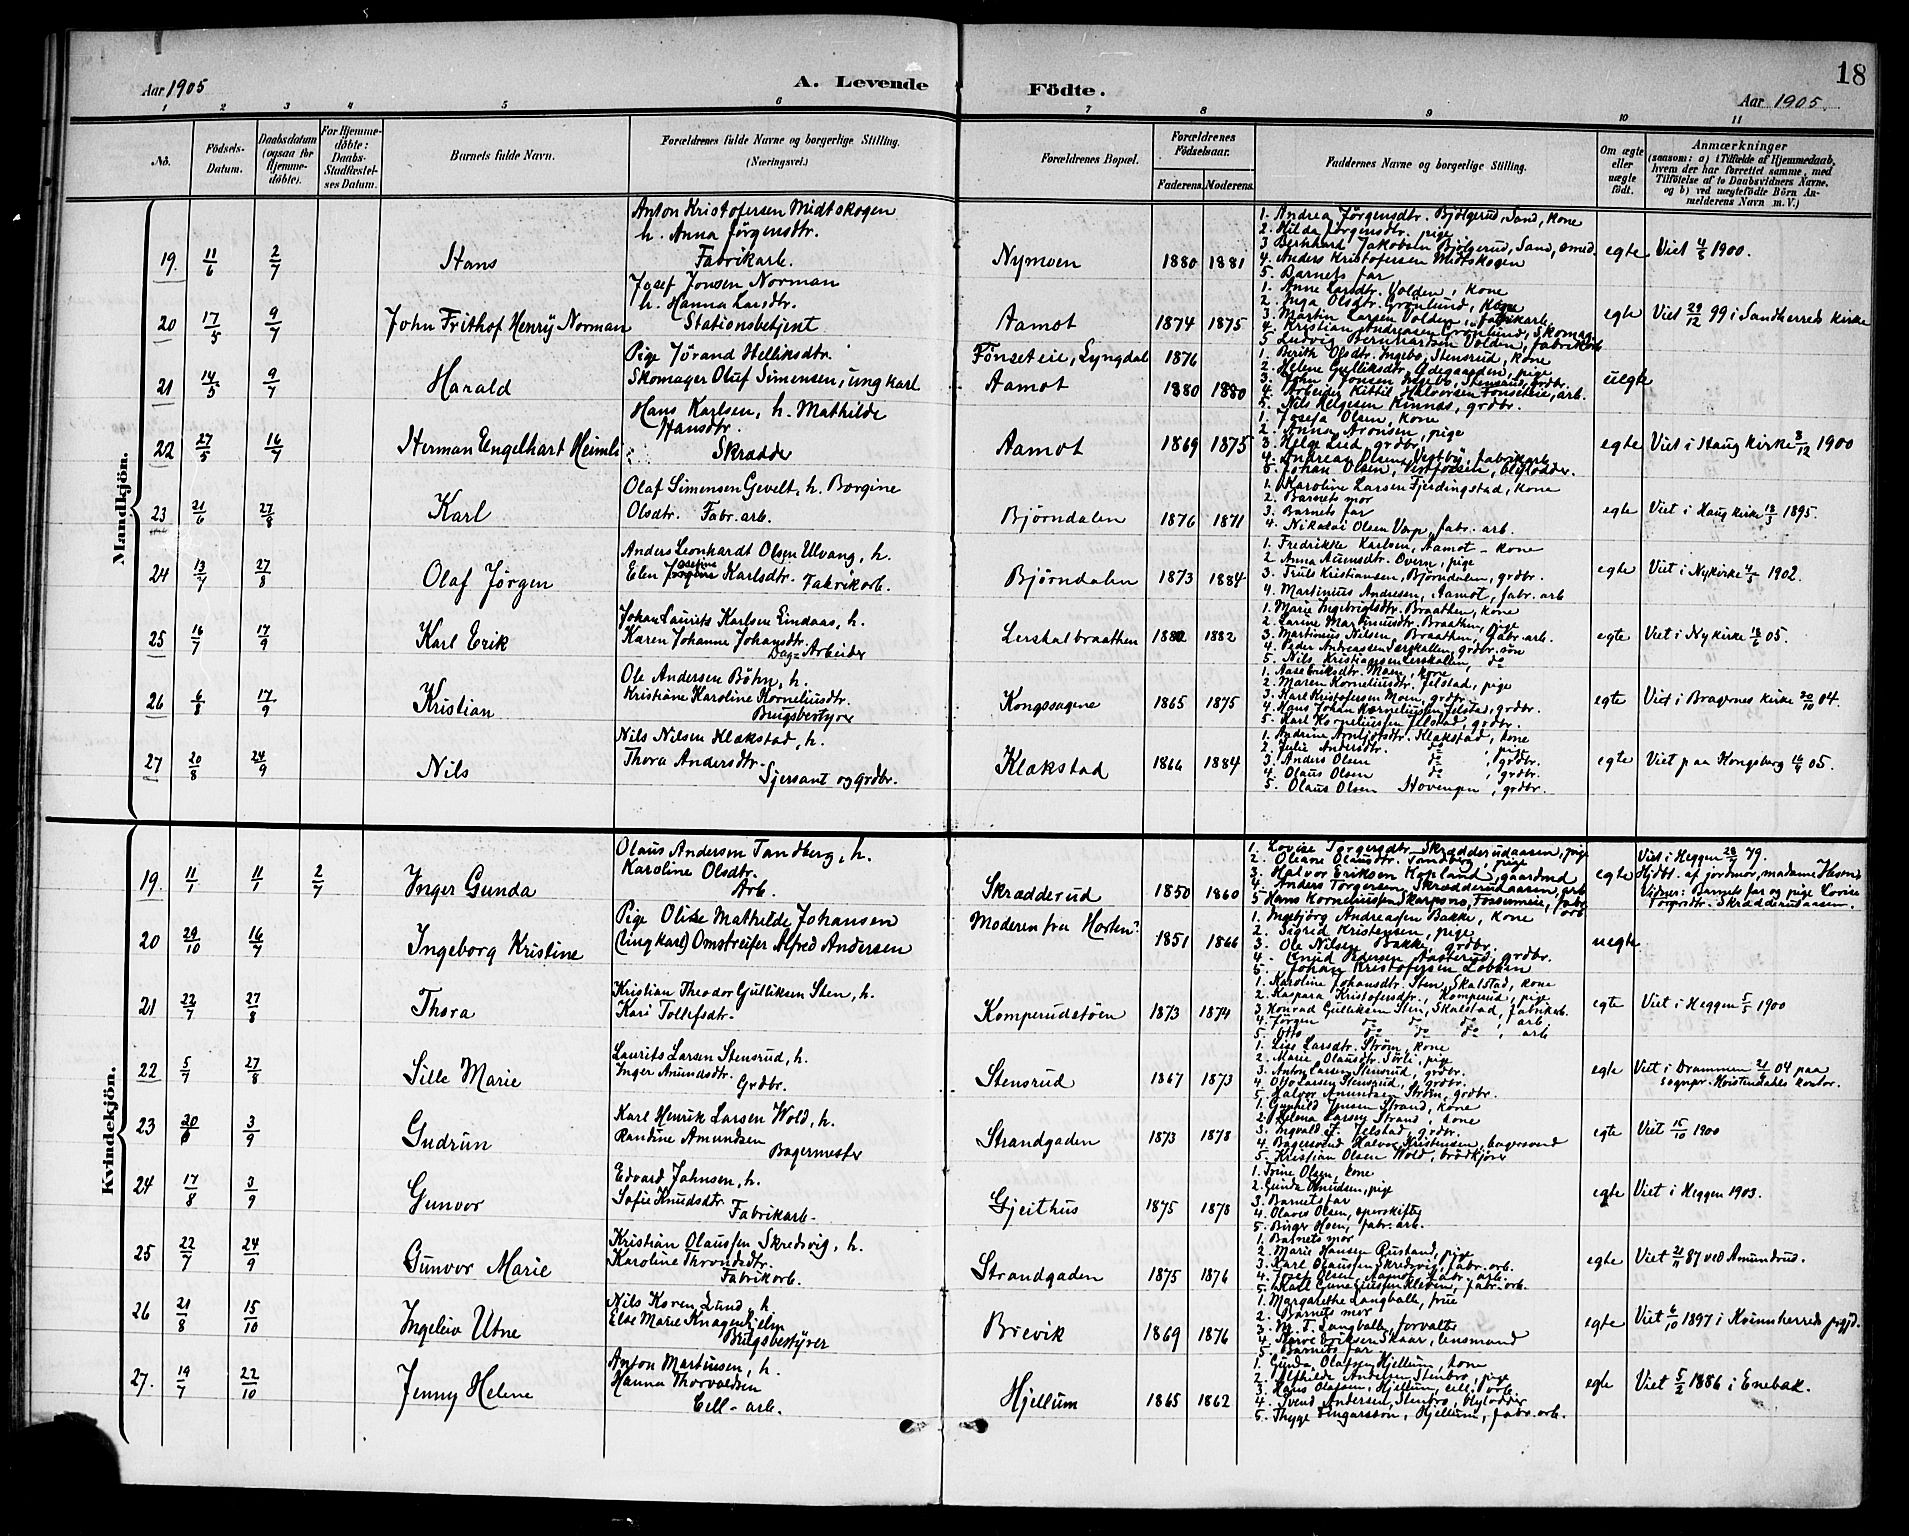 18
Aar 1905
A. Levende
Födte.
Aar 1905.
1 2 3 4 5 6 7 8 9 10 11
No.
Födsels-
Datum.
Daabsdatum
(ogsaa for
Hjemme-
döbte).
For Hjemme-
döbte:
Daabs-
Stadfæstel-
ses Datum.
Barnets fulde Navn.
Forældrenes fulde Navne og borgerlige Stilling.
(Næringsvei.)
Forældrenes Bopæl.
Forældrenes
Födselsaar.
Faderens. Moderens.
Faddernes Navne og borgerlige Stilling.
Om ægte
eller
uægte
födt.
Anmærkninger
(saasom: a) i Tilfælde af Hjemmedaab,
hvem der har forrettet samme, med
Tilföielse af to Daabsvidners Navne,
og b) ved uægtefödte Börn An-
melderens Navn m. V.)
Mandkjön.
19. 11/6 2/7 Hans
Anton Kristofersen Midtskogen
h. Anna Jørgensdtr.
Fabrikarb.
Nymoen 1880 1881
1. Andrea Jørgensdtr. Bjølgerud, Sand, kone
2. Hilda Jørgensdtr. pige
3 Bernhard Jakobsen Bjølgerud, Sand, smed
4. Anders Kristofersen Midtskogen
5. Barnets far
egte Viet 4/5 1900.
20 17/5 9/7 John Frithof Henry Norman
Josef Jonsen Norman
h. Hanna Larsdtr.
Stationsbetjent
Aamot 1874 1875
1. Anne Larsdtr. Volden, kone
2. Inga Olsdtr. Grønlund, kone
3. Martin Larsen Volden, fabrikarb.
4. Kristian Andreasen Grønlund, Skomag.
5 Ludvig Bernhardsen Volden, fabrikarb
egte Viet 29/12 99 i Sandherreds kirke
21 14/5 9/7 Harald
Pige Jørand Helliksdtr.
Skomager Oluf Simensen, ungkarl
Fønseteie, Lyngdal 1876
Aamot 1880 1880
1. Berith Olsdtr. Ingebo, Stensrud, kone
2. Helene Gulliksdtr. Ødegaarden, pige
3. John Jonsen Ingebo, Stensrud, grdbr.
4. Arbeider Kittil Halvorsen Fønseteie, arb.
5. Nils Helgesen Kinnas, grdbr.
uegte
22 27/5 16/7 Herman Engelhart Heimli
Hans Karlsen, h. Mathilde
Hansdtr.
Skrædder
Aamot 1869 1875
1. Josefa Olsen, kone
2. Anna Aronsen, pige
3. Helge Lied, grdbr.
4. Andreas Olsen Vestby, fabrikarb.
5. Johan Olsen, Vestfossen, blylodder.
egte Viet i Haug kirke 8/12 1900
23 21/6 27/8 Karl
Olaf Simensen Gevelt, h. Borgine
Olsdtr. Fabr. arb.
Bjørndalen 1876 1871
1. Karoline Larsen Fjerdingstad, kone
2. Barnets mor
3. Barnets far
4. Nikolai Olsen Varp, fabr. arb.
egte Viet i Haug kirke 18/3 1895.
24 13/7 27/8 Olaf Jørgen
Anders Leonhardt Olsen Ulvang, h.
Elen Josefine Karlsdtr. Fabrikarb.
Bjørndalen 1873 1884
1. Fredrikke Karlsen, Aamot - kone
2 Anna Auensdtr. Overn, pige
3. Truls Kristiansen, Bjørndalen, grdbr.
4. Martinius Andresen, Aamot, fabr. arb
egte Viet i Nykirke 4/5 1902.
25 16/7 17/9 Karl Erik
Johan Laurits Karlsen Lindaas, h.
Karen Johanne Johansdtr.
Dag-Arbeider
Lerskalbraathen 1882 1882
1. Marie Ingebrigtsdtr. Braathen, kone
2. Larine Martinusdtr. Braathen, pige
3. Martinius Nilsen, Braathen, fabr. arb.
4. Peder Andreassen Lerskallen, grdbr. søn
5. Nils Kristiansen Lerskallen, do
egte Viet i Nykirke 18/6 05.
26 6/8 17/9 Kristian
Ole Andersen Böhn, h.
Kristiane Karoline Korneliusdtr.
Brugsbestyrer
Kongssagene 1865 1875
1. Aaseeriksdtr. Moen, kone
2. Maren Korneliusdtr. Jelstad, pige
3. Karl Kristofersen Moen, grdbr.
4. Hans Johan Korneliussen Jelstad, grdbr.
5. Karl Korneliussen Jelstad, grdbr.
egte Viet i Bragernes kirke 20/10 04.
27 20/8 24/9 Nils
Nils Nilsen Klækstad, h.
Thora Andersdtr.
Sjersant og grdbr.
Klækstad 1866 1884
1. Andrine Arntjofsdtr. Klækstad, kone
2. Julie Andersdtr. do, pige
3. Anders Olsen do, grdbr.
4. Olaus Olsen do, grdbr.
5. Olaus Olsen Hovengen, grdbr.
egte Viet paa Kongsberg 16/4 05.
Kvindekjön.
19. 11/1 11/1 2/7 Inger Gunda
Olaus Andersen Tandberg, h.
Karoline Olsdtr.
Arb.
Skrædderud 1850 1860
1. Lovise Torgersdtr. Skrædderudaasen, pige
2. Oleane Olausdtr. Tandberg, pige
3. Halvor Eriksen Hopland, gaardmd
4. Anders Torgersen Skrædderudaasen, arb
5 Hans Korneliussen Skarpsno, Fossumeie, fabr. arb
egte Viet i Heggen 28/7 79.
Hjdbt. af jordmor, madame Hestnes
Vidner: Barnets far og pige Lovise
Torgersdtr. Skrædderudaasen.
20 29/10 16/7 Ingeborg Kristine
Pige Olise Mathilde Johansen
(ungkarl) Omstreifer Alfred Andersen
Moderen fra Horten?
1851 1866
1. Ingebjørg Andreassen Bakke, kone
2. Sigrid Kristensen, pige
3. Ole Nilsen Bakke, grdbr.
4. Knud Pedersen Aasterud, grdbr.
5. Johan Kristofersen Løbben
uegte
21 22/7 27/8 Thora
Kristian Theodor Gulliksen Sten, h.
Kari Tollefsdtr.
Komperudstøen 1873 1874
1. Karoline Johansdtr. Sten, Skalstad, kone
2. Kaspara Kristofersdtr., Komperud, pige
3. Konrad Gulliksen Sten, Skalstad, fabrikarb.
4. Jørgen do do do, arb
5. Otto do do do, arb
egte Viet i Heggen 5/5 1900
22 5/7 27/8 Sille Marie
Laurits Larsen Stensrud, h.
Inger Anundsdtr.
Grdbr.
Stensrud 1867 1873
1. Lise Larsdtr. Strøm, kone
2. Marie Olausdtr. Sørli, pige
3. Anton Larsen Stensrud, grdbr.
4. Otto Larsen Stensrud, grdbr.
5. Halvor Anundsen Strøm, grdbr.
egte Viet i Drammen 21/6 04 paa
sognpr. Kristendahls kontor.
23 20/6 3/9 Gudrun
Karl Henrik Larsen Wold, h.
Randine Amundsen
Bagermester
Strandgaden 1873 1878
1. Gunhild Jensen Strand, kone
2. Helena Larsen Strand, kone
3. Ingvald J. Jelstad, grdbr.
4. Bagersvend Halvor Kristensen, bagersvend
5. Kristian Olsen Wold, brødkjører
egte Viet 15/10 1900
24 17/8 3/9 Gunvor
Edvard Johnsen, h.
Sofie Knudsdtr.
Fabrikarb.
Gjeithus 1875 1878
1. Trine Olsen, kone
2. Gunda Knudsen, pige
3. Barnets far
4. Olaves Olsen, sporskifter
5. Birger Moen, fabr. arb.
egte Viet i Heggen 1903.
25 22/7 24/9 Gunvor Marie
Kristian Olaussen Skredsvig, h.
Karoline Throndsdtr.
Fabrikarb.
Strandgaden 1875 1876
1. Barnets mor
2. Marie Hansen Rustand, pige
3. Karl Olaussen Skredsvig, fabr. arb.
4. Josef Olsen, Aamot, fabr. arb.
5. Karl Guneriussen Kleven, fabr. arb.
egte Viet 21/11 87 ved Amundrud.
26 21/8 15/10 Ingeleiv Utne
Nils Koren Lund, h
Else Marie Knagenhjelm
Brugsbestyrer
Brevik 1869 1876
1. Margarethe Langballe, frue
2. Barnets mor
3. M. T. Langballe, forvalter
4. Torve Eriksen Skaar, lensmand
5. Barnets far
egte Viet 6/10 1897 i Kvinnherreds prgjd.
27. 19/7 22/10 Jenny Helene
Anton Martinsen, h.
Hanna Thorvaldsen
Cell-arb.
Hjellum 1865 1862
1. Gunda Olafsen Hjellum, kone
2. Alfhilde Andersen Stenbro, pige
3. Hans Olafsen, Hjellum, cell. arb.
4. Svend Andersen, Stenbro, blylodder
5. Thyge Fingarsson, Hjellum, fabr. arb.
egte Viet 5/2 1886 i Enebak.